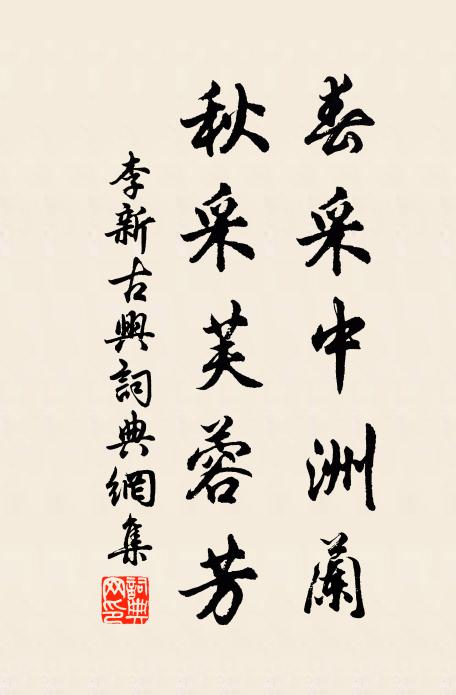 春采中洲蘭
秋采芙蓉芳
李新古興詞典網集
詞典網印